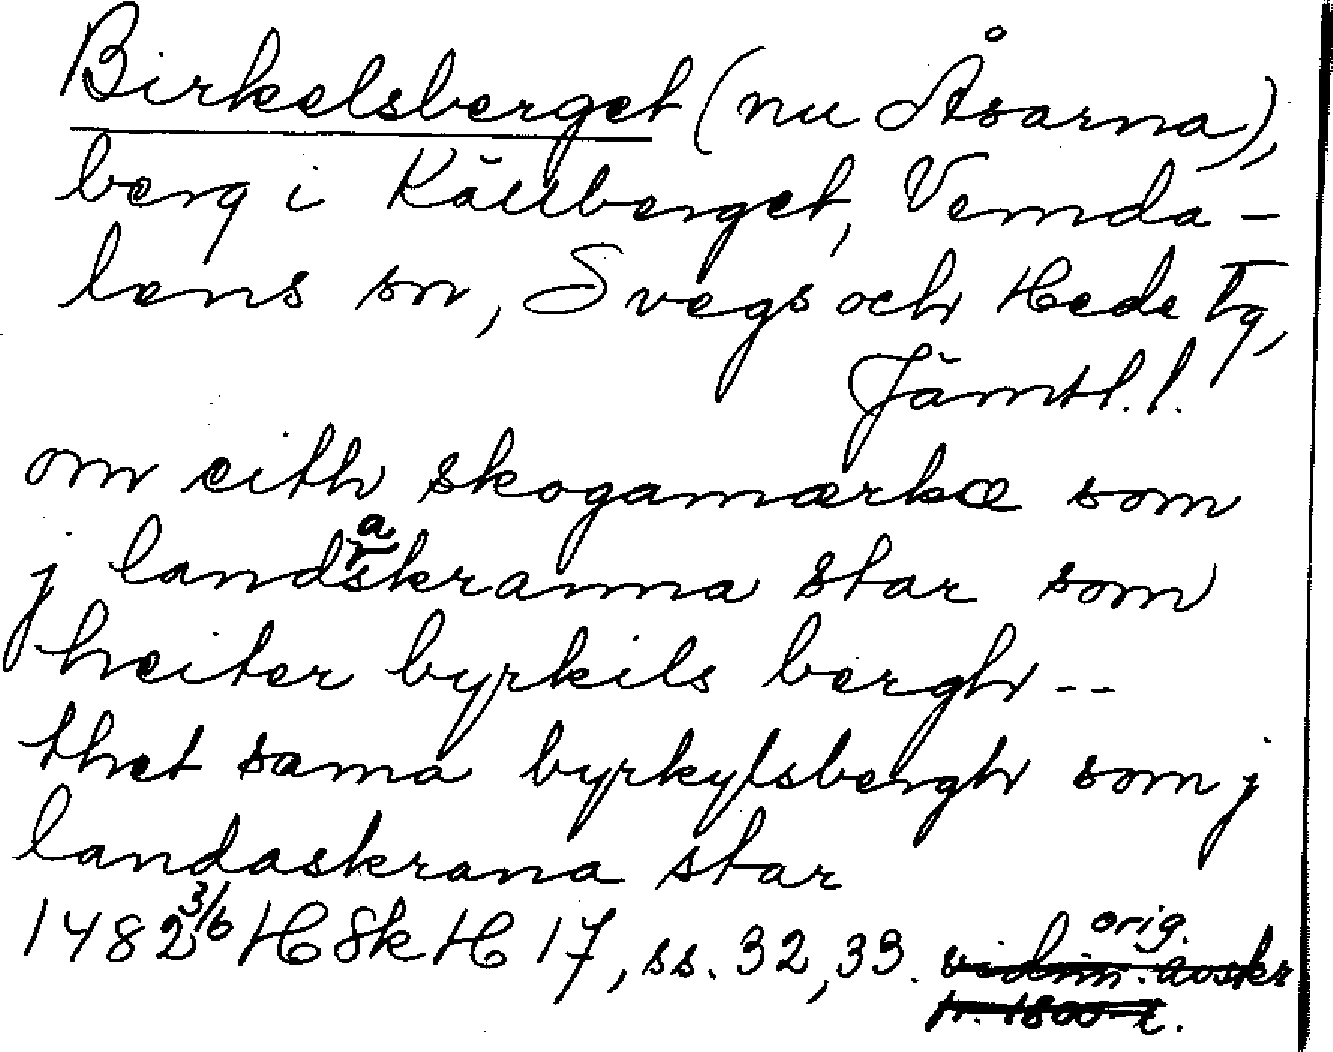 Birkelsberget (nu Åsarna),
berg i Källberget, Vemda-
lens sn, Svegs och Hede tg,
Jämtl. l.
om eith skogamærkæ som
j landaskranna star som
heiter byrkils bergh --
thet sama byrkylsbergh som j
landaskrana star
1482 3/6 HSkH 17, ss. 32, 33. orig.
vidim. avskr
fr. 1800-t.